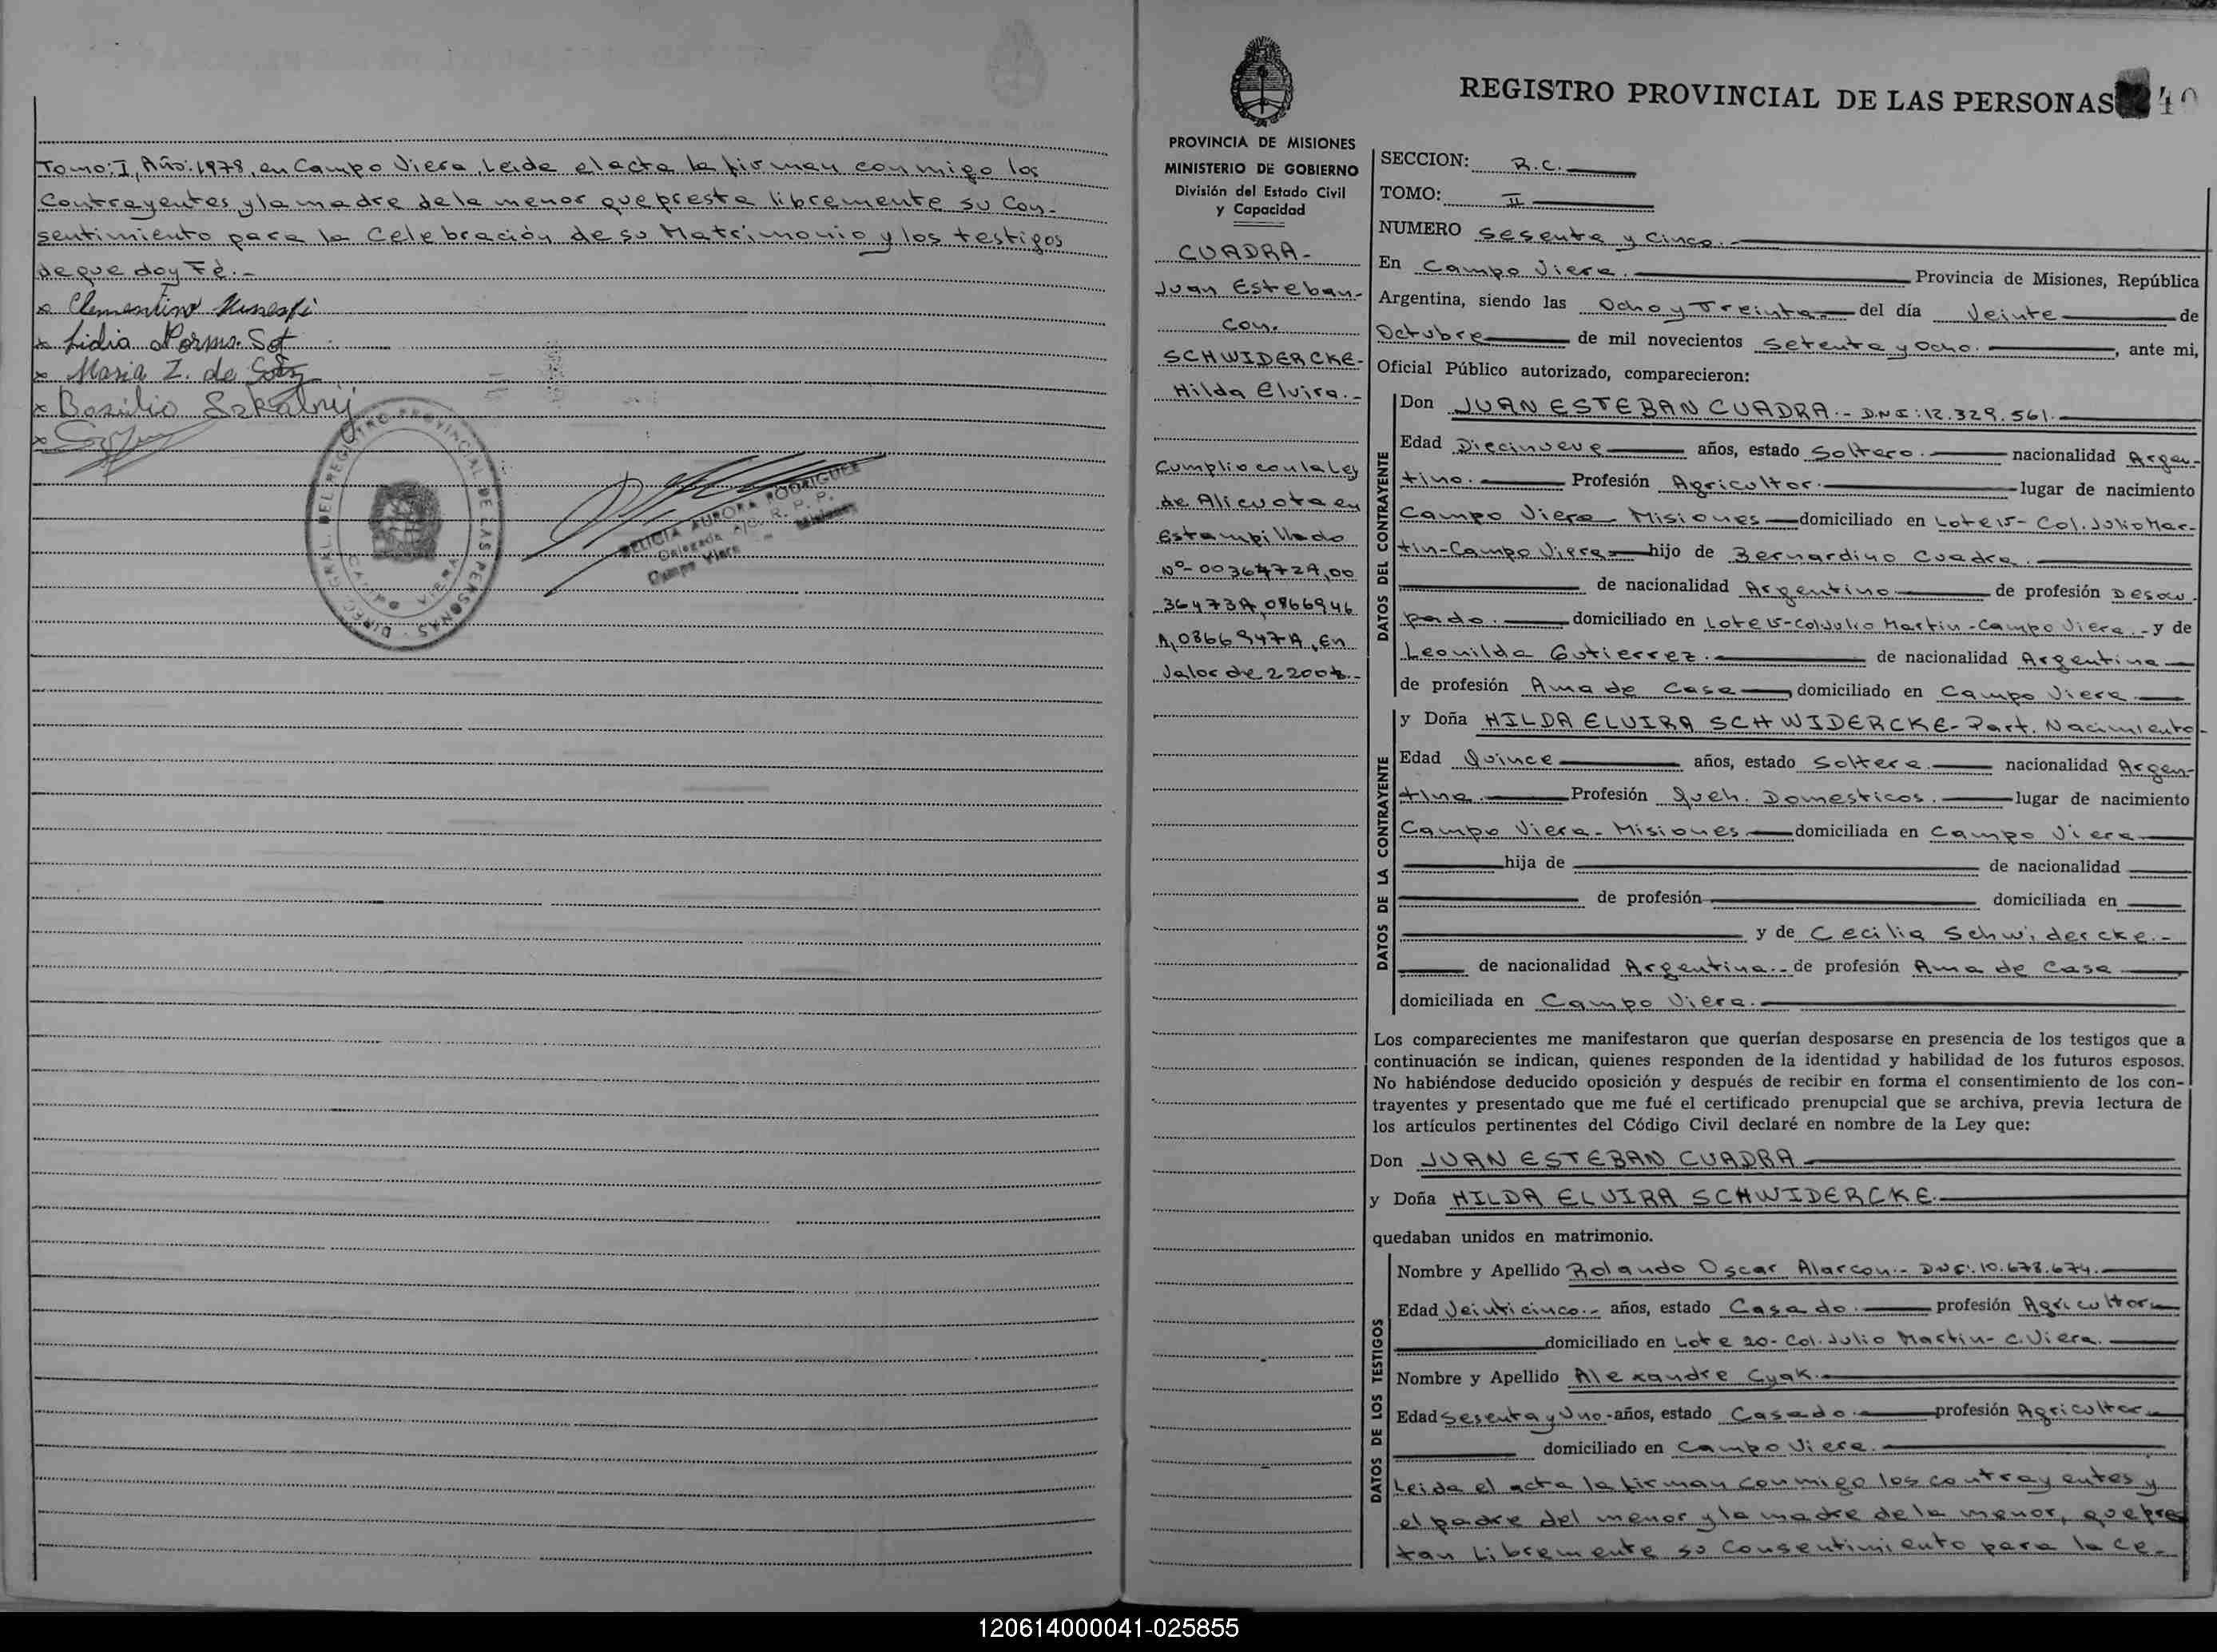 Tomo: I, Año: 1978, en Campo Viera, Leida el acta la firman conmigo los
Contrayentes y la madre de la menor que presta libremente su Con-
sentimiento para la Celebración de su Matrimonio y los testigos
de que doy Fè.-
x Clementino
x Lidia Norma Sot
x Maria Z. de Sotz
x Basilio
x
DIREC. GRAL. DEL REGISTRO PROVINCIAL DE LAS PERSONAS
CAMPO VIERA
DELICIA AURORA RODRIGUEZ
Delegada R. P. P.
Campo Viera - Misiones
PROVINCIA DE MISIONES
MINISTERIO DE GOBIERNO
División del Estado Civil
y Capacidad
CUADRA-
Juan Esteban-
Con.
SCHWIDERCKE-
Hilda Elvira.-
Cumplio con la Ley
de Alicuota en
Estampillado
Nº- 00364772A, 00
364773A, 0866946
A, 0866947A, En
Valor de 2200$.-
REGISTRO PROVINCIAL DE LAS PERSONAS 40
SECCION: R.C.
TOMO: II
NUMERO Sesenta y Cinco.-
En Campo Viera. Provincia de Misiones, República
Argentina, siendo las Ocho y Treinta. del día Veinte de
Octubre de mil novecientos Setenta y Ocho. , ante mi,
Oficial Público autorizado, comparecieron:
DATOS DEL CONTRAYENTE
Don JUAN ESTEBAN CUADRA.- DNI: 12.329.561.
Edad Diecinueve años, estado Soltero. nacionalidad Argen-
tino. Profesión Agricultor. lugar de nacimiento
Campo Viera Misiones domiciliado en Lote 15- Col. Julio Mar-
tin-Campo Viera hijo de Bernardino Cuadra.
de nacionalidad Argentino de profesión Desocu
pado. domiciliado en Lote 15-Col Julio Martin-Campo Viera.- y de
Leonilda Gutierrez. de nacionalidad Argentina
de profesión Ama de Casa , domiciliado en Campo Viera
DATOS DE LA CONTRAYENTE
y Doña HILDA ELVIRA SCHWIDERCKE- Part. Nacimiento-
Edad Quince años, estado Soltera. nacionalidad Argen-
tina. Profesión Queh. Domesticos. lugar de nacimiento
Campo Viera- Misiones domiciliada en Campo Viera
hija de de nacionalidad
de profesión domiciliada en
y de Cecilia Schwidercke.-
de nacionalidad Argentina.- de profesión Ama de Casa
domiciliada en Campo Viera.
Los comparecientes me manifestaron que querían desposarse en presencia de los testigos que a
continuación se indican, quienes responden de la identidad y habilidad de los futuros esposos.
No habiéndose deducido oposición y después de recibir en forma el consentimiento de los con-
trayentes y presentado que me fué el certificado prenupcial que se archiva, previa lectura de
los artículos pertinentes del Código Civil declaré en nombre de la Ley que:
Don JUAN ESTEBAN CUADRA
y Doña HILDA ELVIRA SCHWIDERCKE.
quedaban unidos en matrimonio.
DATOS DE LOS TESTIGOS
Nombre y Apellido Rolando Oscar Alarcon.- DNI: 10.678.674.
Edad Veinticinco.- años, estado Casado. profesión Agricultor
domiciliado en Lote 20- Col. Julio Martin- C. Viera.
Nombre y Apellido Alexandre Cyak.
Edad Sesenta y Uno-años, estado Casado. profesión Agricultor
domiciliado en Campo Viera.
Leida el acta la firman conmigo los contrayentes y
el padre del menor y la madre de la menor, que pres
tan Libremente su Consentimiento para la Ce-
120614000041-025855